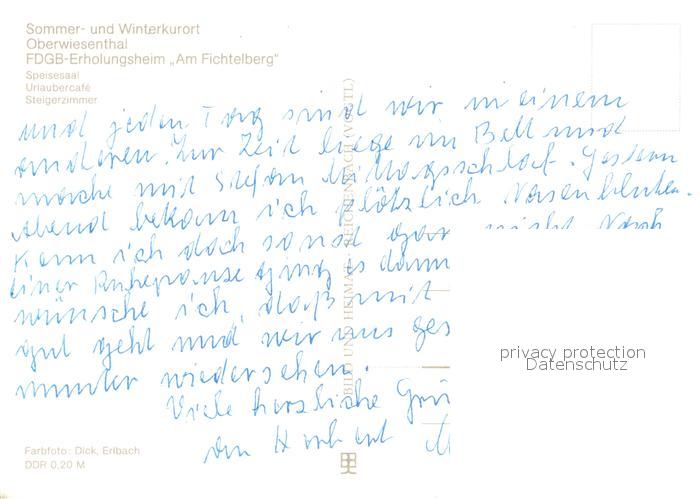 Sommer- und Winterkurort
Oberwiesenthal
FDGB-Erholungsheim „Am Fichtelberg"
Speisesaal
Urlaubercafé
Steigerzimmer
und jeden Tag sind wir in einem
anderen. Zur Zeit liege im Bett und
mache mit Stefan Mittagsschlaf. Gestern
Abend bekam ich plötzlich Nasenbluten.
Kenn ich doch sonst gar nicht Nach
einer Ruhepause ging es dann
wünsche ich, daß mit
gut geht und wir uns ges
munter wiedersehen.
Viele herzliche Grü
an
BILD UND HEIMAT REICHENBACH (VOGTL)
privacy protection
Datenschutz
Farbfoto: Dick, Erlbach
DDR 0,20 M